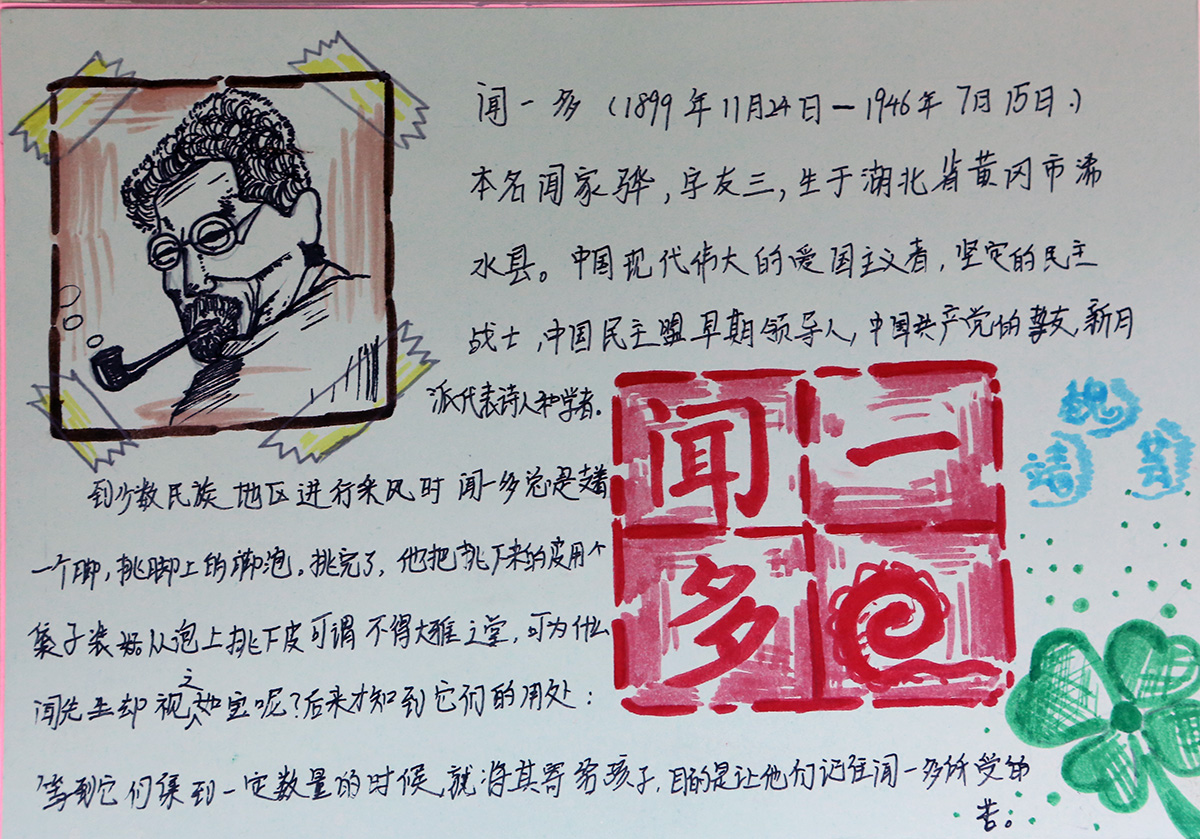 闻一多（1899年11月24日—1946年7月15日.）
本名闻家骅，字友三，生于湖北省黄冈市浠
水县。中国现代伟大的爱国主义者，坚定的民主
战士，中国民主盟早期领导人，中国共产党的挚友，新月
派代表诗人和学者.
闻一
多
到少数民族地区进行采风时闻一多总是支着
一个脚，挑脚上的脚泡。挑完了，他把挑下来的皮用个
袋子装好从泡上挑下皮可谓不得大雅之堂，可为什么
闻先生却视之如宝呢？后来才知到它们的用处：
等到它们集到一定数量的时候，就将其寄给孩子，目的是让他们记住闻一多所受的
苦。